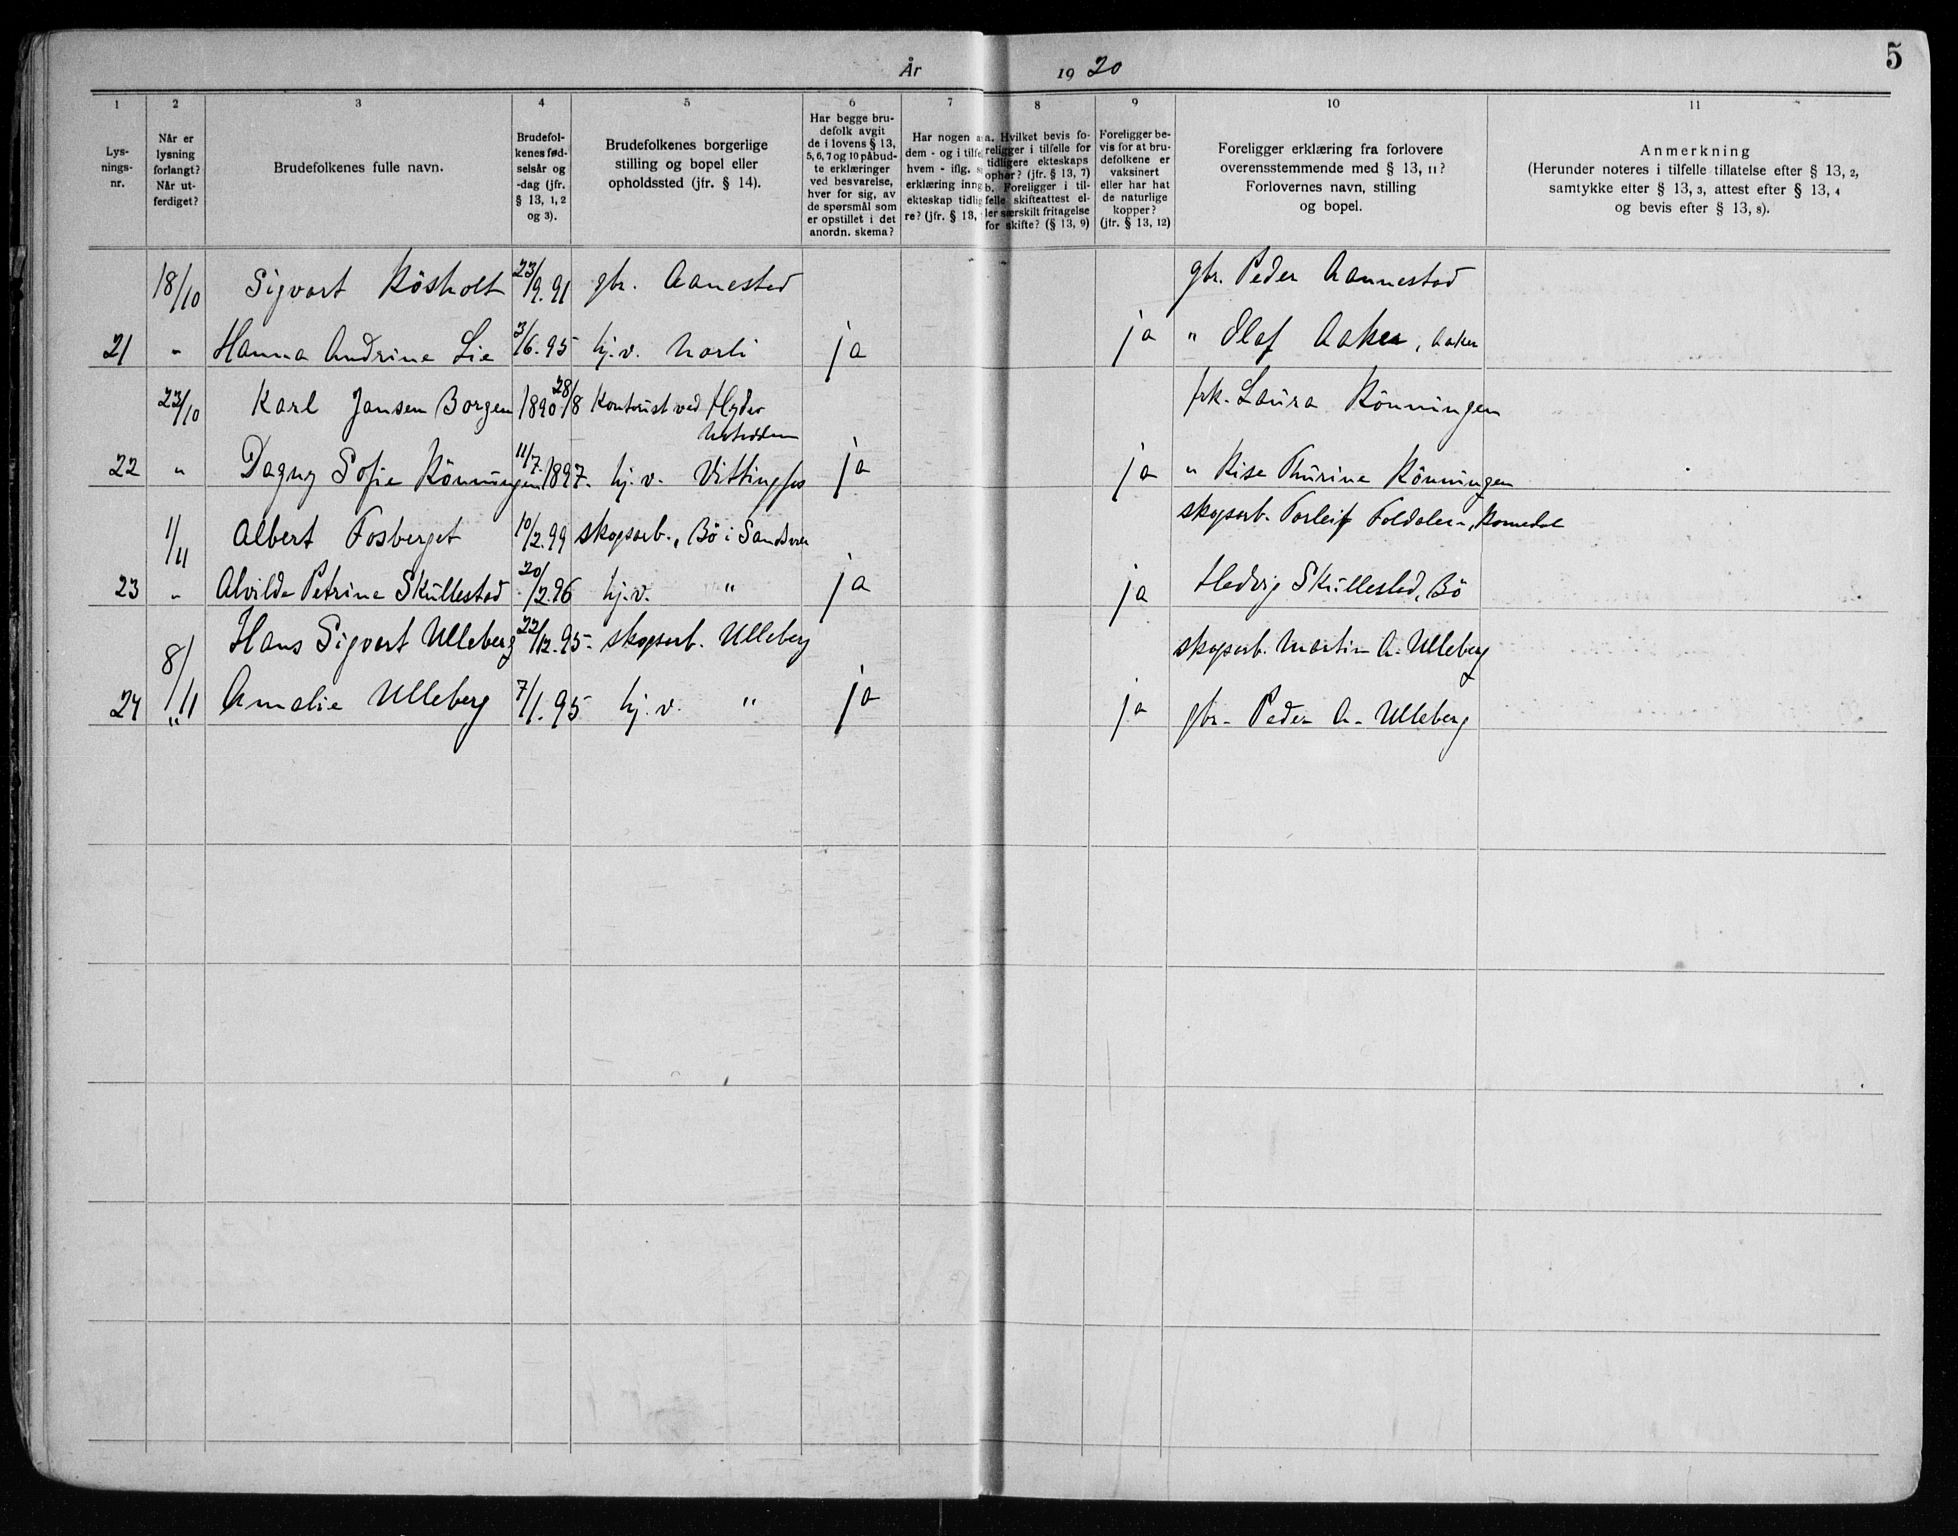 5
År 1920
1 2 3 4 5 6 7 8 9 10 11
Lys-
nings-
nr.
Når er
lysning
forlangt?
Når ut-
ferdiget?
Brudefolkenes fulle navn.
Brudefol-
kenes fød-
selsår og
-dag (jfr.
§ 13, 1, 2
og 3).
Brudefolkenes borgerlige
stilling og bopel eller
opholdssted (jfr. § 14).
Har begge bru-
defolk avgit
de i lovens § 13,
5, 6, 7 og 10 påbud-
te erklæringer
ved besvarelse,
hver for sig, av
de spørsmål som
er opstillet i det
anordn. skema?
Har nogen a
dem - og i tilfe
hvem - iflg. s
erklæring inng
ekteskap tidlig
re? (jfr. § 13,
a. Hvilket bevis fo-
religger i tilfelle for
tidligere ekteskaps
ophør? (jfr. § 13, 7)
b. Foreligger i til-
felle skifteattest el-
ler særskilt fritagelse
for skifte? (§ 13, 9)
Foreligger be-
vis for at bru-
defolkene er
vaksinert
eller har hat
de naturlige
kopper?
(jfr. § 13, 12)
Foreligger erklæring fra forlovere
overensstemmende med § 13, 11?
Forlovernes navn, stilling
og bopel.
Anmerkning
(Herunder noteres i tilfelle tillatelse efter § 13, 2,
samtykke efter § 13, 3, attest efter § 13, 4
og bevis efter § 13, 8).
18/10 Sigvart Rösholt 23/9.91 gbr. Aanestad gbr. Peder Aannestad
21 " Hanna Andrine Lie 3/6.95 hj.v. Narli ja ja " Olaf Aaker, Aaker
23/10 Karl Jansen Borgen 1890 28/8 Kontorist ved Hydro frk. Laura Rönningen
Notodden
22 " Dagny Sofie Rönningen 11/7.1897. hj.v. Vittingfos ja ja " Rise Thurine Rönningen
1/11 Albert Fosberget 10/2.99 skogsarb., Bö i Sandsvær skogsarb. Torleif Foldalen, Romedal
23 " Alvilde Petrine Skullestad 20/12.96 hj.v. " ja ja Hedvig Skullestad, Bö
8/11 Hans Sigvart Ulleberg 22/12.95. skogsarb. Ulleberg skogsarb. Martin A. Ulleberg
24 " Amalie Ulleberg 7/1.95 hj.v. " ja ja gbr. Peder A. Ulleberg